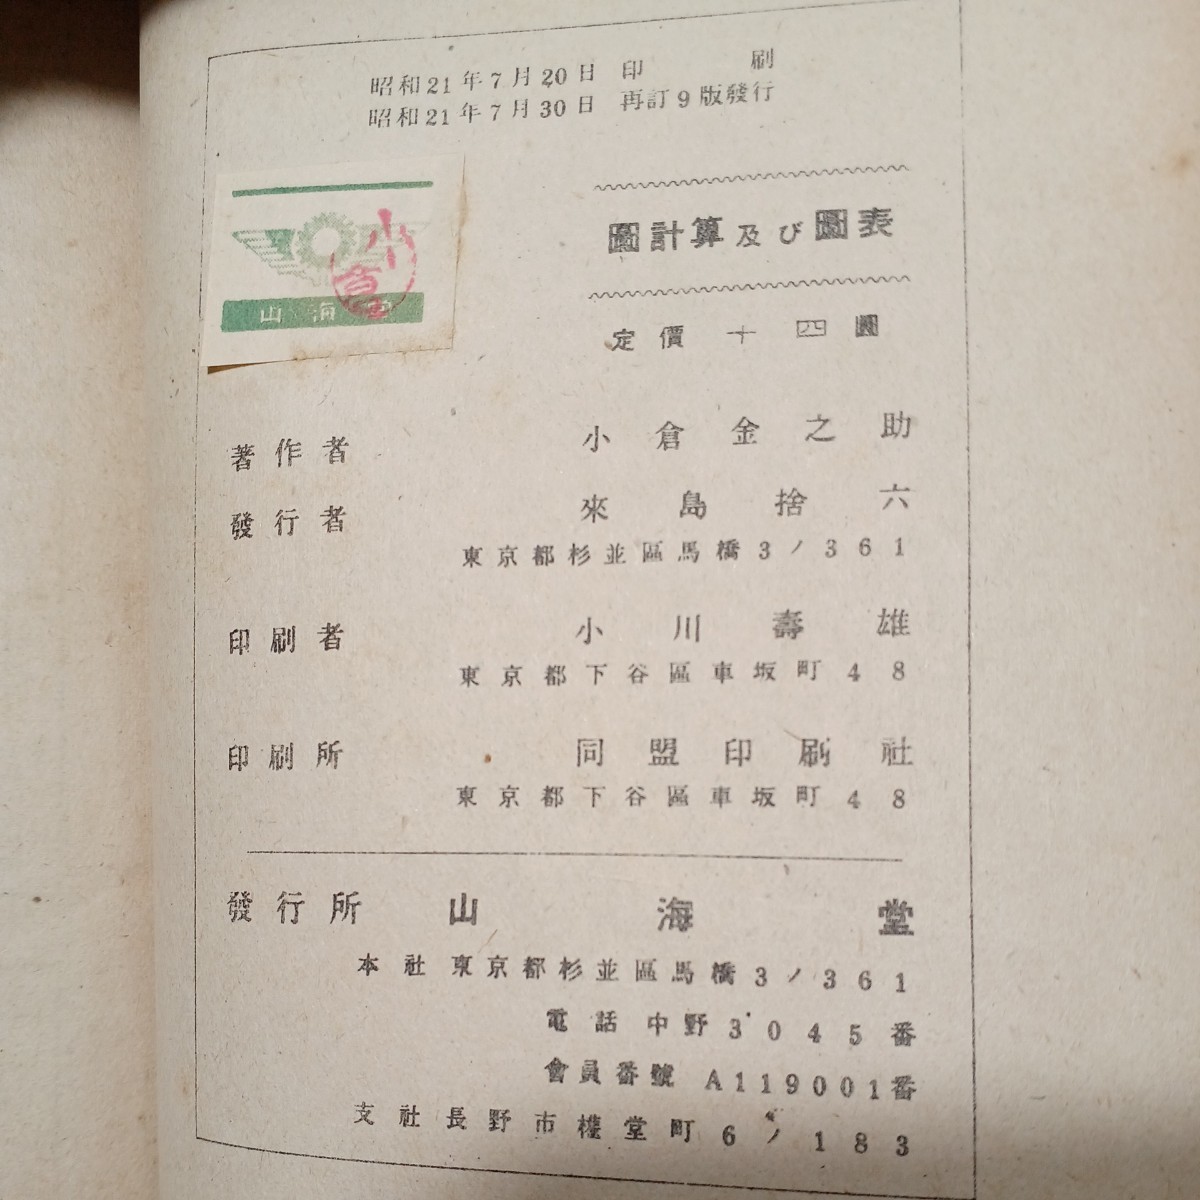 昭和21年7月20日 印刷
昭和21年7月30日 再訂9版發行
山海堂
小倉
圖計算及び圖表
定價 十四圓
著作者 小倉金之助
發行者 來島捨六
東京都杉並區馬橋3ノ361
印刷者 小川壽雄
東京都下谷區車坂町48
印刷所 同盟印刷社
東京都下谷區車坂町48
發行所 山海堂
本社 東京都杉並區馬橋3ノ361
電話 中野3045番
會員番號 A119001番
支社 長野市權堂町6ノ183